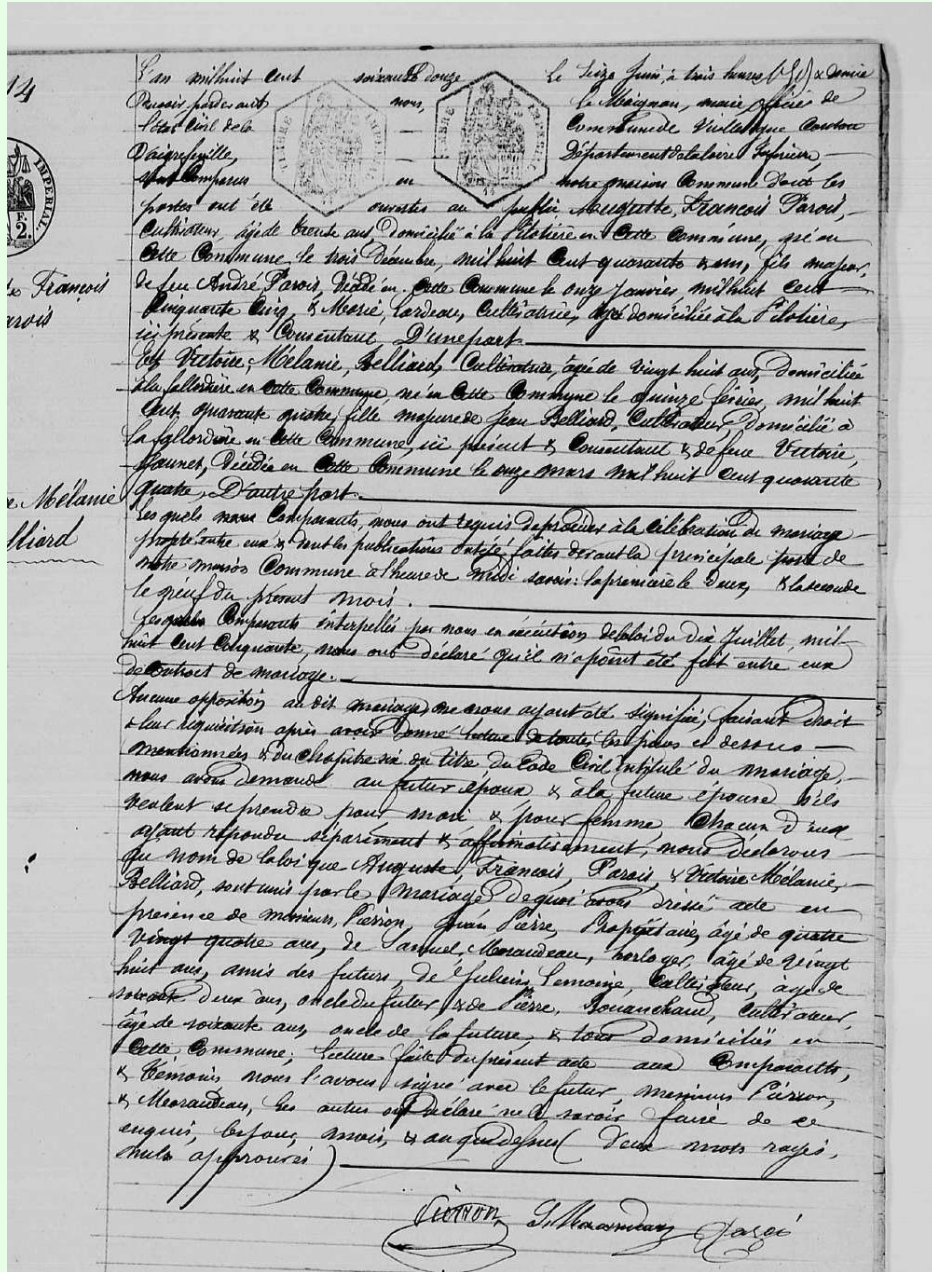 14
TIMBRE IMPERIAL
IMPERIAL.
F.
2.
François
Parois
Mélanie
Belliard
L'an mil huit cent soixante douze le seize Juin, à trois heures & demie
Pardevant nous, le Meignan, maire officier de
l'état Civil de la Commune de Vieillevigne Canton
D'aigrefeuille, Département de la loire Inférieure,
sont Comparus en notre maison Commune dont les
portes ont été ouvertes au public Auguste, François Parois,
Cultivateur, âgé de trente ans, domicilié à la Pilotière en Cette Commune, né en
Cette Commune le trois Décembre, mil huit Cent quarante & un, fils majeur,
de feu André Parois, Décédé en Cette Commune le onze Janvier, mil huit Cent
Cinquante Cinq, & Marie, Lardeau, Cultivatrice, domiciliée à la Pilotière,
ici présente & Consentante, D'une part.
Et Victoire, Mélanie, Belliard, Cultivatrice, âgée de vingt huit ans, domiciliée
à la fallordière en Cette Commune, née en Cette Commune le quinze février, mil huit
Cent quarante quatre, fille majeure de Jean Belliard, Cultivateur, domicilié à
la fallordière en Cette Commune, ici présent & Consentant & de feue Victoire,
Jaunet, Décédée en Cette Commune le onze mars mil huit cent quarante
quatre, D'autre part.
Les quels Comparants, nous ont requis de procéder à la célébration du mariage
projeté entre eux & dont les publications ont été faites devant la principale porte de
notre maison Commune à l'heure de midi savoir: la première le deux, & la seconde
le neuf du présent mois.
Lesquels Comparants interpellés par nous en exécution de la loi du dix Juillet, mil
huit Cent Cinquante, nous ont déclaré qu'il n'a point été fait entre eux
de Contrat de mariage.
Aucune opposition au dit mariage, ne nous ayant été signifiée, faisant droit
à leur réquisition après avoir Donné lecture de toutes les pièces ci dessus
mentionnées & du chapitre six du titre du Code Civil intitulé du mariage,
nous avons demandé au futur époux & à la future épouse s'ils
veulent se prendre pour mari & pour femme, Chacun D'eux
ayant répondu séparément & affirmativement, nous déclarons
au nom de la loi que Auguste, François, Parois, & Victoire Mélanie,
Belliard, sont unis par le mariage De quoi avons dressé acte en
présence de messieurs, Pierron, Jean Pierre, Propriétaire, âgé de quatre
vingt quatre ans, de Samuel, Moraudeau, horloger, âgé de vingt
huit ans, amis des futurs, de Julien, Lemoine, Cultivateur, âgé de
soixante deux ans, oncle du futur & de Pierre, Bouanchaud, Cultivateur,
âgé de soixante ans, oncle de la future, & tous domiciliés en
Cette Commune; lecture faite du présent acte aux Comparants,
& témoins nous l'avons signé avec le futur, messieurs Pierron,
& Moraudeau, les autres ont Déclaré ne le savoir faire de ce
enquis, les jour, mois, & an que dessus (Deux mots rayés,
nuls approuvés)
Pierron S. Moraudeau Parois